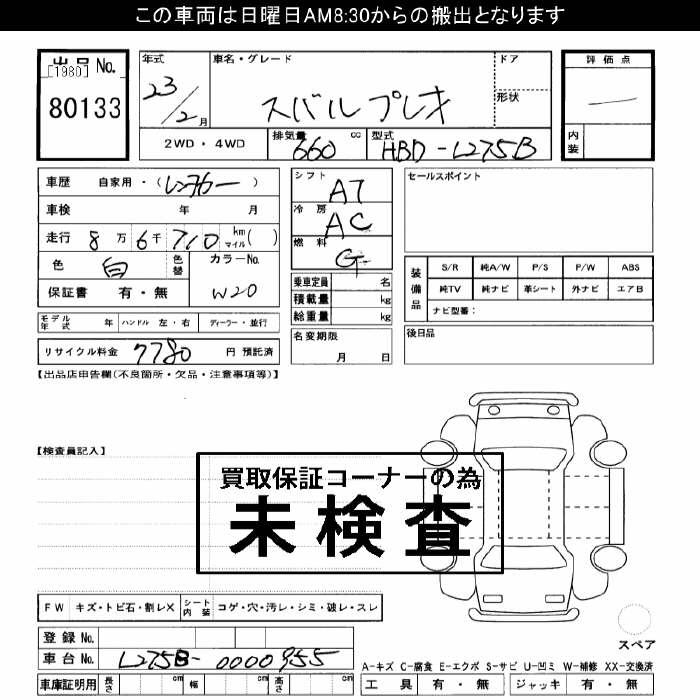 この車両は日曜日AM8:30からの搬出となります
出品 No.
[1980]
80133
年式
23/2月
車名・グレード
スバルプレオ
ドア
形状
評価点
内装
2WD・4WD
排気量 660 cc
型式 HBD-L275B
車歴 自家用・(レンタカー)
車検 年 月
走行 8万6千710 km マイル( )
色 白 色替
カラーNo. W20
保証書 有・無
シフト AT
冷房 AC
燃料 G
乗車定員 名
積載量 kg
総重量 kg
セールスポイント
装備品
S/R 純A/W P/S P/W ABS
純TV 純ナビ 革シート 外ナビ エアB
ナビ型番:
モデル年式 年 ハンドル 左・右 ディーラー・並行
名変期限 月 日
後日品
リサイクル料金 7780 円 預託済
【出品店申告欄(不良箇所・欠品・注意事項等)】
【検査員記入】
買取保証コーナーの為
未検査
FW キズ・トビ石・割レX シート内装 コゲ・穴・汚レ・シミ・破レ・スレ
登録 No.
車台 No. L275B-0000955
スペア
A-キズ C-腐食 E-エクボ S-サビ U-凹ミ W-補修 XX-交換済
車庫証明用 長さ cm 幅 cm 高さ cm
工具 有・無 ジャッキ 有・無